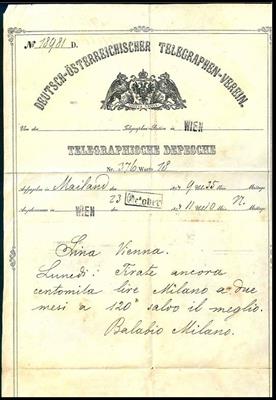 № 18981 D.
DEUTSCH-ÖSTERREICHISCHER TELEGRAPHEN-VEREIN.
Von der Telegraphen-Station in WIEN
TELEGRAPHISCHE DEPESCHE
Nr. 376 Worte 18
Aufgegeben in Mailand den 9 Uhr 35 Min. Mittags
23 October
Angekommen in WIEN den 11 Uhr 10 Min. Mittags
Sina Vienna.
Lunedi: Tirate ancora
centomila lire Milano a due
mesi a 120" salvo il meglio.
Balabio Milano.